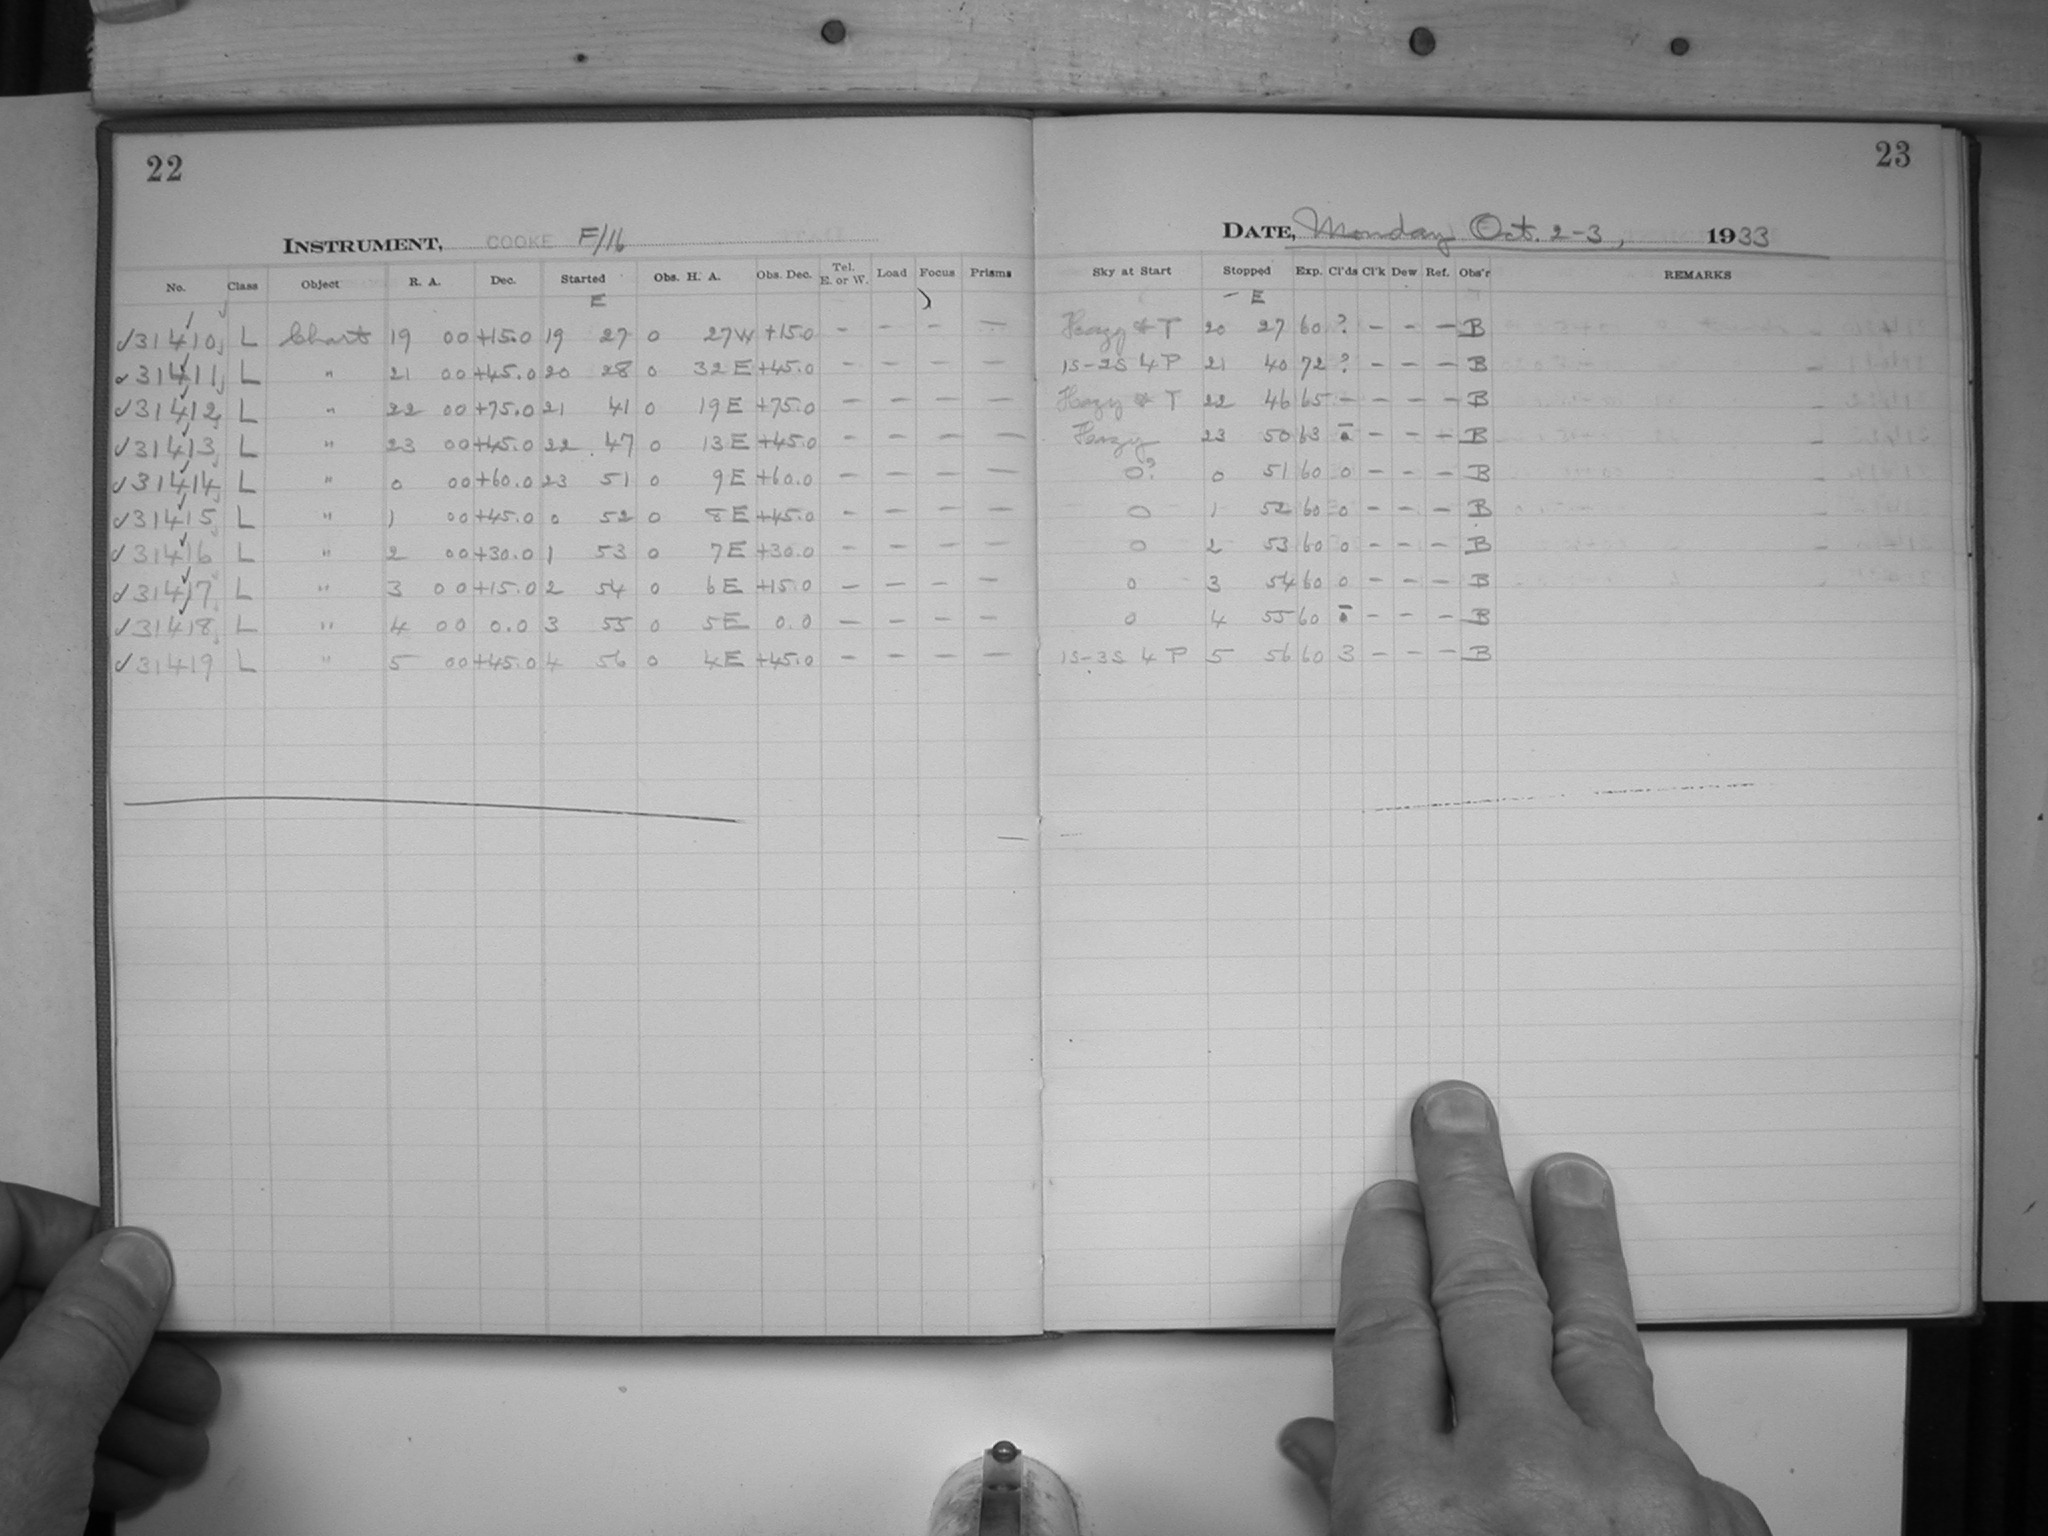 22
INSTRUMENT, COOKE F/16
No. Class Object R. A. Dec. Started Obs. H. A. Obs. Dec. Tel. E. or W. Load Focus Prisms
E
31410 L Chart 19 00 +15.0 19 27 0 27 W +15.0 - - - -
31411 L " 21 00 +45.0 20 28 0 32 E +45.0 - - - -
31412 L " 22 00 +75.0 21 41 0 19 E +75.0 - - - -
31413 L " 23 00 +45.0 22 47 0 13 E +45.0 - - - -
31414 L " 0 00 +60.0 23 51 0 9 E +60.0 - - - -
31415 L " 1 00 +45.0 0 52 0 8 E +45.0 - - - -
31416 L " 2 00 +30.0 1 53 0 7 E +30.0 - - - -
31417 L " 3 00 +15.0 2 54 0 6 E +15.0 - - - -
31418 L " 4 00 0.0 3 55 0 5 E 0.0 - - - -
31419 L " 5 00 +45.0 4 56 0 4 E +45.0 - - - -
23
DATE, Monday Oct. 2-3, 1933
Sky at Start Stopped Exp. Cl'ds Cl'k Dew Ref. Obs'r REMARKS
- E
Hazy & T 20 27 60 ? - - - B
1S-2S 4 P 21 40 72 ? - - - B
Hazy & T 22 46 65 - - - - B
Hazy 23 50 63 - - - B
0? 0 51 60 0 - - - B
0 1 52 60 0 - - - B
0 2 53 60 0 - - - B
0 3 54 60 0 - - - B
0 4 55 60 - - - B
1S-3S 4 P 5 56 60 3 - - - B